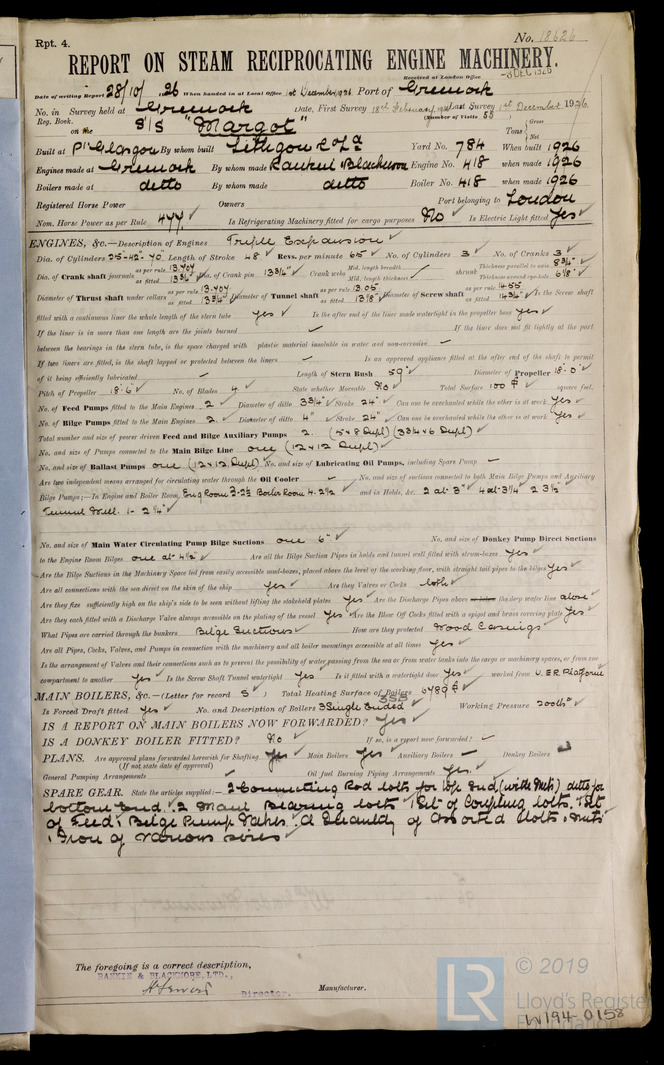 Rpt. 4.
No. 18626
REPORT ON STEAM RECIPROCATING ENGINE MACHINERY.
Received at London Office -3 DEC 1926
Date of writing Report 28/10/1926 When handed in at Local Office 1st December 1926 Port of Greenock
No. in Survey held at Greenock Date, First Survey 18th February, 1926 Last Survey 1st December 1926
Reg. Book. (Number of Visits 58)
on the S/S "Margot" Tons { Gross Net
Built at Pt Glasgow By whom built Lithgows Ltd Yard No. 784 When built 1926
Engines made at Greenock By whom made Rankin & Blackmore Engine No. 418 when made 1926
Boilers made at ditto By whom made ditto Boiler No. 418 when made 1926
Registered Horse Power Owners Port belonging to London
Nom. Horse Power as per Rule 477 Is Refrigerating Machinery fitted for cargo purposes No Is Electric Light fitted Yes
ENGINES, &c.—Description of Engines Triple Expansion
Dia. of Cylinders 25-42-70" Length of Stroke 48" Revs. per minute 65 No. of Cylinders 3 No. of Cranks 3
Dia. of Crank shaft journals as per rule 13.404 as fitted 13¾" Dia. of Crank pin 13¾" Crank webs Mid. length breadth Mid. length thickness shrunk Thickness parallel to axis 8¾" Thickness around eye-hole 6⅛"
Diameter of Thrust shaft under collars as per rule 13.404 as fitted 13¾" Diameter of Tunnel shaft as per rule 13.05 as fitted 13⅛" Diameter of Screw shaft as per rule 14.55 as fitted 14¾" Is the Screw shaft
fitted with a continuous liner the whole length of the stern tube yes Is the after end of the liner made watertight in the propeller boss yes
If the liner is in more than one length are the joints burned If the liner does not fit tightly at the part
between the bearings in the stern tube, is the space charged with plastic material insoluble in water and non-corrosive
If two liners are fitted, is the shaft lapped or protected between the liners Is an approved appliance fitted at the after end of the shaft to permit
of it being efficiently lubricated Length of Stern Bush 59" Diameter of Propeller 18'-0"
Pitch of Propeller 18'-6" No. of Blades 4 State whether Moveable No Total Surface 100 square feet.
No. of Feed Pumps fitted to the Main Engines 2 Diameter of ditto 3¾" Stroke 24" Can one be overhauled while the other is at work Yes
No. of Bilge Pumps fitted to the Main Engines 2 Diameter of ditto 4" Stroke 24" Can one be overhauled while the other is at work Yes
Total number and size of power driven Feed and Bilge Auxiliary Pumps 2. (5×8 Dupl) (3¾×6 Dupl)
No. and size of Pumps connected to the Main Bilge Line one (12×12 Dupl)
No. and size of Ballast Pumps one (12×12 Dupl) No. and size of Lubricating Oil Pumps, including Spare Pump
Are two independent means arranged for circulating water through the Oil Cooler No. and size of suctions connected to both Main Bilge Pumps and Auxiliary
Bilge Pumps;—In Engine and Boiler Room Eng Room 3-2½ Boiler Room 4.2½ and in Holds, &c. 2 at 3" 4 at 3¼" 2 3½"
Tunnel Well 1- 2¼"
No. and size of Main Water Circulating Pump Bilge Suctions one 6" No. and size of Donkey Pump Direct Suctions
to the Engine Room Bilges one at 4½" Are all the Bilge Suction Pipes in holds and tunnel well fitted with strum-boxes yes
Are the Bilge Suctions in the Machinery Space led from easily accessible mud-boxes, placed above the level of the working floor, with straight tail pipes to the bilges Yes
Are all connections with the sea direct on the skin of the ship Yes Are they Valves or Cocks both
Are they fixed sufficiently high on the ship's side to be seen without lifting the stokehold plates Yes Are the Discharge Pipes above or below the deep water line above
Are they each fitted with a Discharge Valve always accessible on the plating of the vessel Yes Are the Blow Off Cocks fitted with a spigot and brass covering plate Yes
What Pipes are carried through the bunkers Bilge Suctions How are they protected Wood Casings
Are all Pipes, Cocks, Valves, and Pumps in connection with the machinery and all boiler mountings accessible at all times Yes
Is the arrangement of Valves and their connections such as to prevent the possibility of water passing from the sea or from water tanks into the cargo or machinery spaces, or from one
compartment to another Yes Is the Screw Shaft Tunnel watertight Yes Is it fitted with a watertight door Yes worked from U.E.R. Platform
MAIN BOILERS, &c.—(Letter for record S) Total Heating Surface of Boilers 6789
Is Forced Draft fitted Yes No. and Description of Boilers 3 Single Ended 3SB Working Pressure 200 lbs
IS A REPORT ON MAIN BOILERS NOW FORWARDED? Yes
IS A DONKEY BOILER FITTED? No If so, is a report now forwarded?
PLANS. Are approved plans forwarded herewith for Shafting Yes Main Boilers Yes Auxiliary Boilers Donkey Boilers
(If not state date of approval)
General Pumping Arrangements Oil fuel Burning Piping Arrangements Yes
SPARE GEAR. State the articles supplied:— 2 Connecting Rod bolts for top end (with Nuts) ditto for
bottom end. 2 Main Bearing bolts 1 Set of Coupling bolts. 1 Set
of Feed & Bilge Pump Valves. A Quantity of Assorted Bolts & Nuts
& Iron of various sizes
The foregoing is a correct description,
RANKIN & BLACKMORE, LTD.,
Director. Manufacturer.
LR © 2019
Lloyd's Register
Foundation
W194-0158